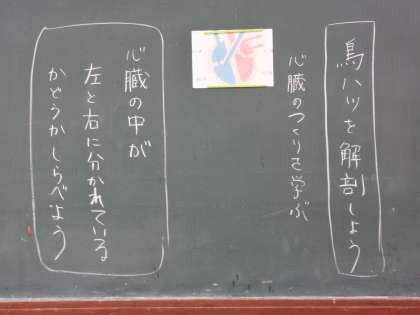 鳥ハツを解剖しよう
心臓のつくりを学ぶ
心臓の中が
左と右に分かれている
かどうかしらべよう